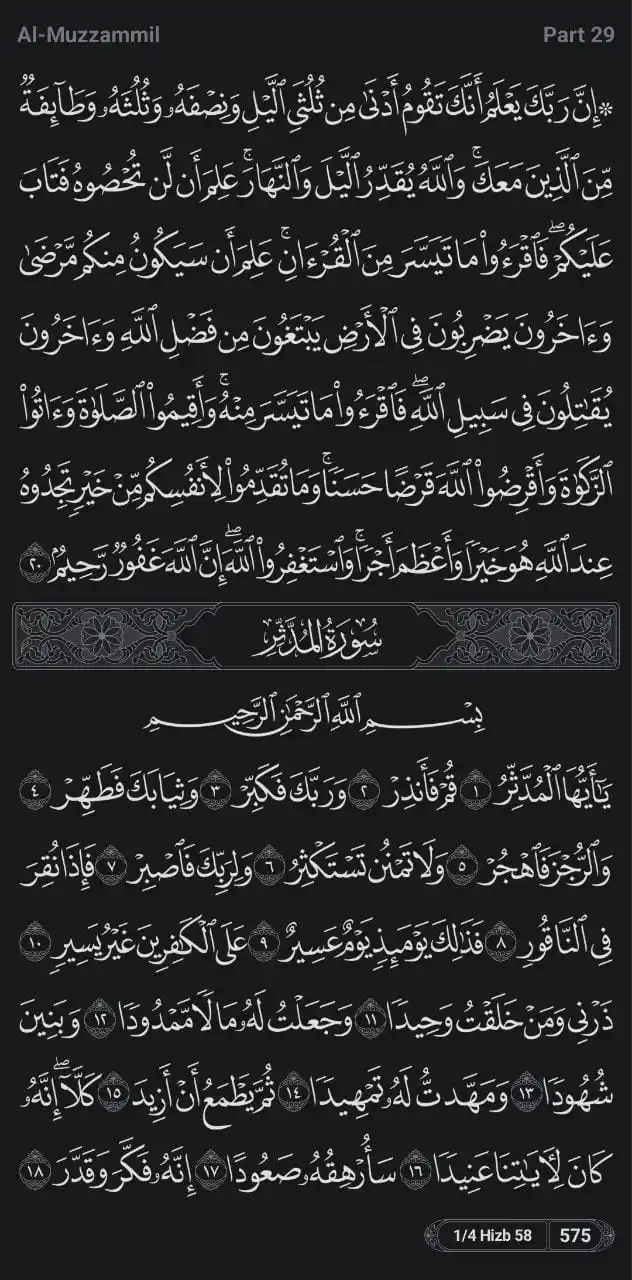 Al-Muzzammil Part 29
۞ إِنَّ رَبَّكَ يَعْلَمُ أَنَّكَ تَقُومُ أَدْنَىٰ مِن ثُلُثَىِ ٱلَّيْلِ وَنِصْفَهُۥ وَثُلُثَهُۥ وَطَآئِفَةٌ
مِّنَ ٱلَّذِينَ مَعَكَ ۚ وَٱللَّهُ يُقَدِّرُ ٱلَّيْلَ وَٱلنَّهَارَ ۚ عَلِمَ أَن لَّن تُحْصُوهُ فَتَابَ
عَلَيْكُمْ ۖ فَٱقْرَءُوا۟ مَا تَيَسَّرَ مِنَ ٱلْقُرْءَانِ ۚ عَلِمَ أَن سَيَكُونُ مِنكُم مَّرْضَىٰ
وَءَاخَرُونَ يَضْرِبُونَ فِى ٱلْأَرْضِ يَبْتَغُونَ مِن فَضْلِ ٱللَّهِ وَءَاخَرُونَ
يُقَٰتِلُونَ فِى سَبِيلِ ٱللَّهِ ۖ فَٱقْرَءُوا۟ مَا تَيَسَّرَ مِنْهُ ۚ وَأَقِيمُوا۟ ٱلصَّلَوٰةَ وَءَاتُوا۟
ٱلزَّكَوٰةَ وَأَقْرِضُوا۟ ٱللَّهَ قَرْضًا حَسَنًا ۚ وَمَا تُقَدِّمُوا۟ لِأَنفُسِكُم مِّنْ خَيْرٍ تَجِدُوهُ
عِندَ ٱللَّهِ هُوَ خَيْرًا وَأَعْظَمَ أَجْرًا ۚ وَٱسْتَغْفِرُوا۟ ٱللَّهَ ۖ إِنَّ ٱللَّهَ غَفُورٌ رَّحِيمٌۢ ٢٠
سُورَةُ المُدَّثِّرِ
بِسْمِ ٱللَّهِ ٱلرَّحْمَٰنِ ٱلرَّحِيمِ
يَٰٓأَيُّهَا ٱلْمُدَّثِّرُ ١ قُمْ فَأَنذِرْ ٢ وَرَبَّكَ فَكَبِّرْ ٣ وَثِيَابَكَ فَطَهِّرْ ٤
وَٱلرُّجْزَ فَٱهْجُرْ ٥ وَلَا تَمْنُن تَسْتَكْثِرُ ٦ وَلِرَبِّكَ فَٱصْبِرْ ٧ فَإِذَا نُقِرَ
فِى ٱلنَّاقُورِ ٨ فَذَٰلِكَ يَوْمَئِذٍ يَوْمٌ عَسِيرٌ ٩ عَلَى ٱلْكَٰفِرِينَ غَيْرُ يَسِيرٍ ١٠
ذَرْنِى وَمَنْ خَلَقْتُ وَحِيدًا ١١ وَجَعَلْتُ لَهُۥ مَالًا مَّمْدُودًا ١٢ وَبَنِينَ
شُهُودًا ١٣ وَمَهَّدتُّ لَهُۥ تَمْهِيدًا ١٤ ثُمَّ يَطْمَعُ أَنْ أَزِيدَ ١٥ كَلَّآ ۖ إِنَّهُۥ
كَانَ لِءَايَٰتِنَا عَنِيدًا ١٦ سَأُرْهِقُهُۥ صَعُودًا ١٧ إِنَّهُۥ فَكَّرَ وَقَدَّرَ ١٨
1/4 Hizb 58 575